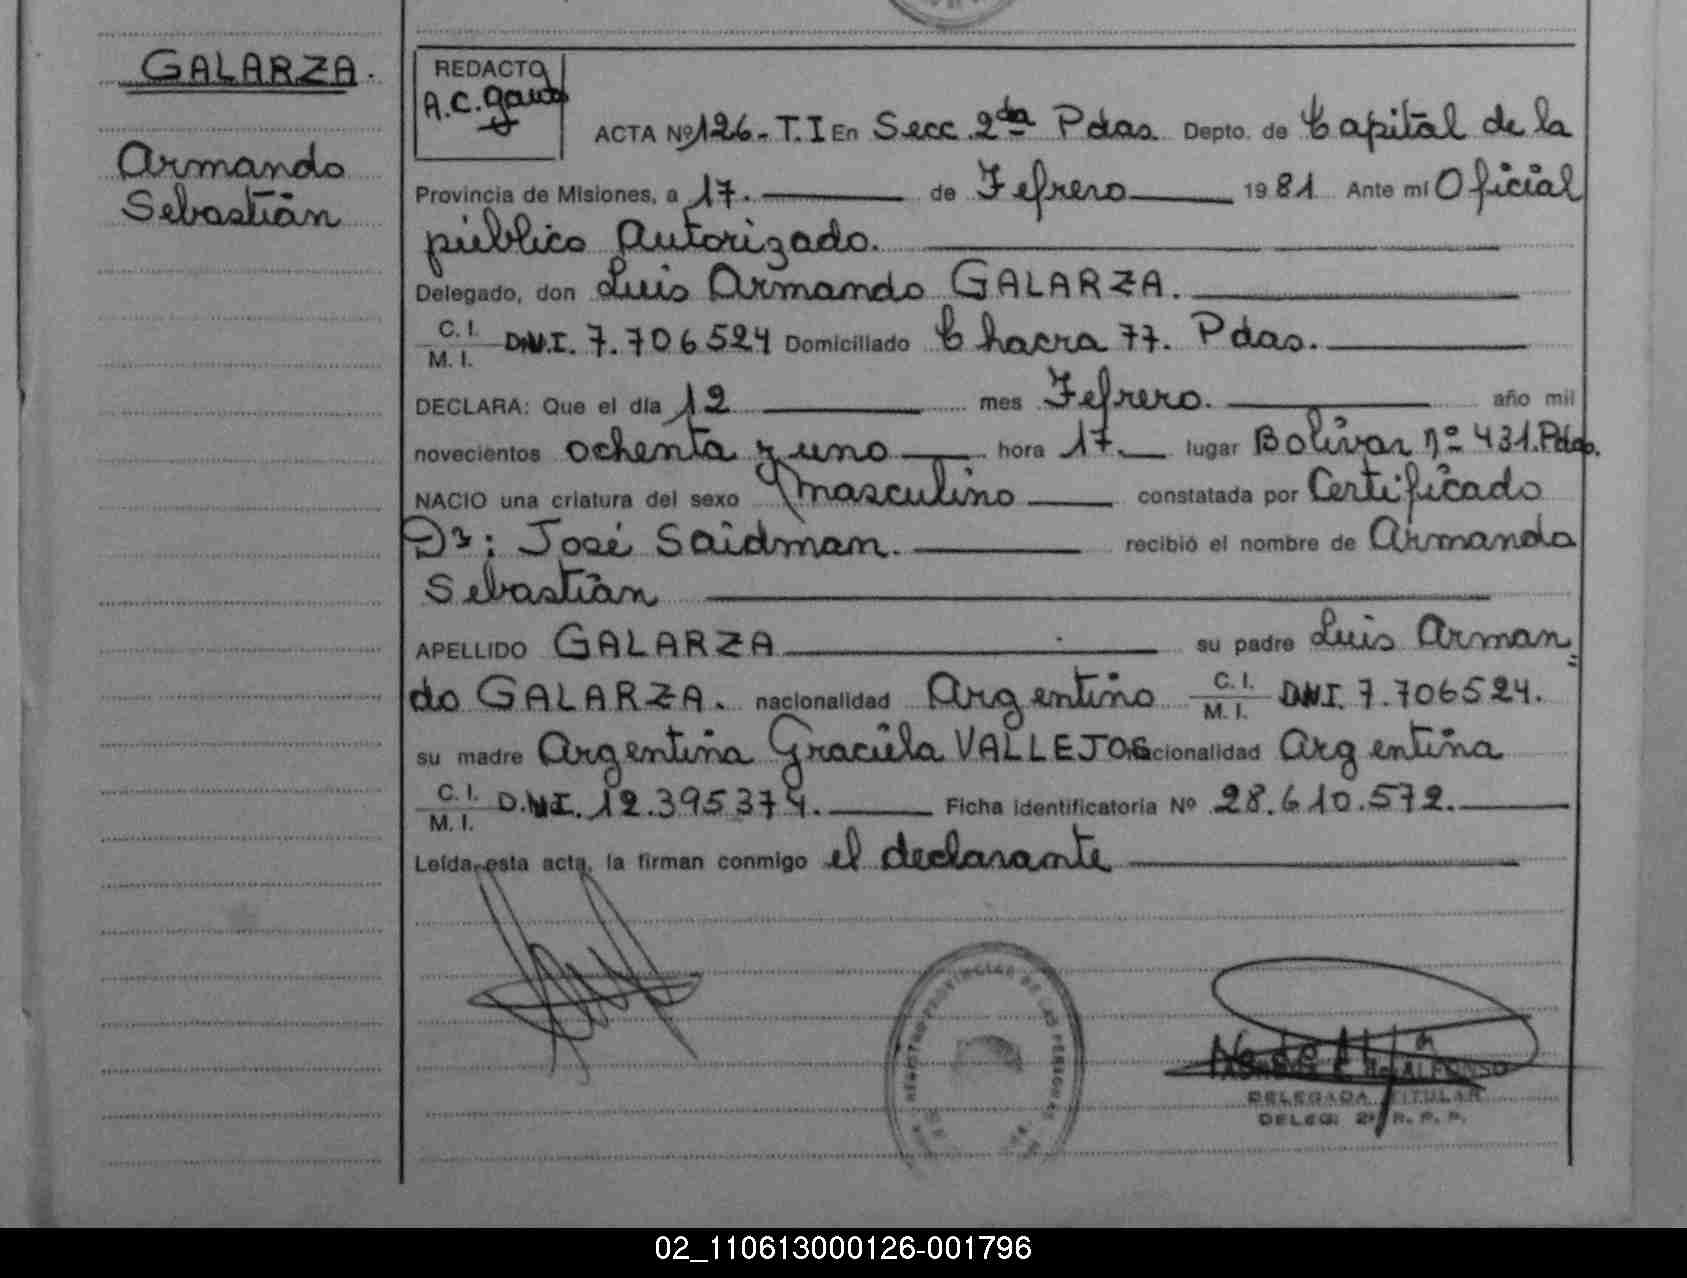 GALARZA.
Armando
Sebastián
REDACTO
A.C.
ACTA Nº 126-T.I En Secc. 2da Pdas. Depto. de Capital de la
Provincia de Misiones, a 17. de Fefrero 1981 Ante mi Oficial
público Autorizado.
Delegado, don Luis Armando GALARZA.
C. I.
M. I. D.N.I. 7.706524 Domiciliado Chacra 77. Pdas.
DECLARA: Que el día 12 mes Fefrero. año mil
novecientos ochenta y uno hora 17. lugar Bolívar nº 431. Pdas.
NACIO una criatura del sexo masculino constatada por Certificado
Dr: José Saidman. recibió el nombre de Armando
Sebastián
APELLIDO GALARZA su padre Luis Arman=
do GALARZA. nacionalidad Argentino C. I. M. I. DNI. 7.706524.
su madre Argentina Graciela VALLEJOS nacionalidad Argentina
C. I.
M. I. D.N.I. 12.395374. Ficha identificatoria Nº 28.610.572.
Leída esta acta, la firman conmigo el declarante
PROVINCIAL DE LAS PERSONAS
ALFONSO
DELEGADA TITULAR
DELEG. 2ª R. P. P.
02_110613000126-001796